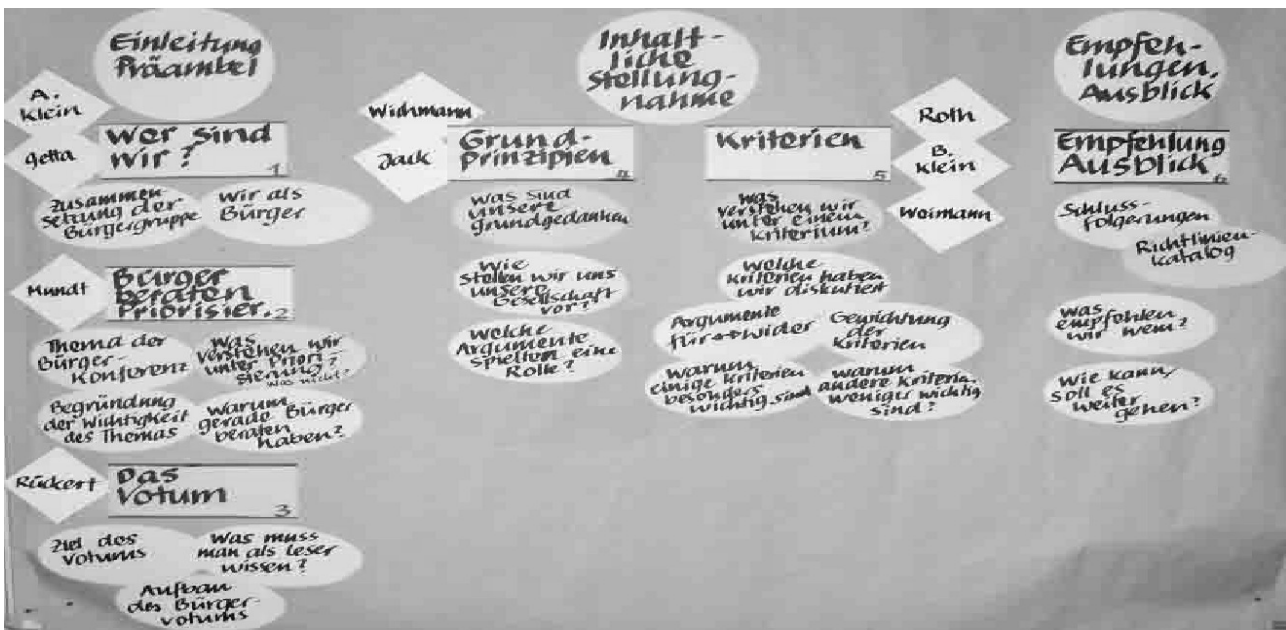 Einleitung
Präambel
A.
Klein
Getta
Wer sind
wir?
1
Zusammen-
setzung der
Bürgergruppe
wir als
Bürger
Mundt
Bürger
beraten
Priorisier.
2
Thema der
Bürger-
Konferenz
was
verstehen wir
unter Priori-
sierung?
was nicht?
Begründung
der Wichtigkeit
des Themas
warum
gerade Bürger
beraten
haben?
Rückert
Das
Votum
3
Ziel des
Votums
Was muss
man als Leser
wissen?
Aufbau
des Bürger-
votums
Inhalt-
liche
Stellung-
nahme
Wichmann
Jack
Grund-
prinzipien
4
was sind
unsere
Grundgedanken
Wie
stellen wir uns
unsere
Gesellschaft
vor?
Welche
Argumente
spielten eine
Rolle?
Kriterien
5
was
verstehen wir
unter einem
Kriterium?
welche
Kriterien haben
wir diskutiert
Argumente
für + wider
Gewichtung
der
Kriterien
warum
einige Kriterien
besonders
wichtig sind
warum
andere Kriterien
weniger wichtig
sind?
Empfeh-
lungen,
Ausblick
Roth
B.
Klein
Weimann
Empfehlung
Ausblick
6
Schluss-
folgerungen
Richtlinien-
katalog
was
empfehlen
wir wem?
Wie kann/
soll es
weiter
gehen?